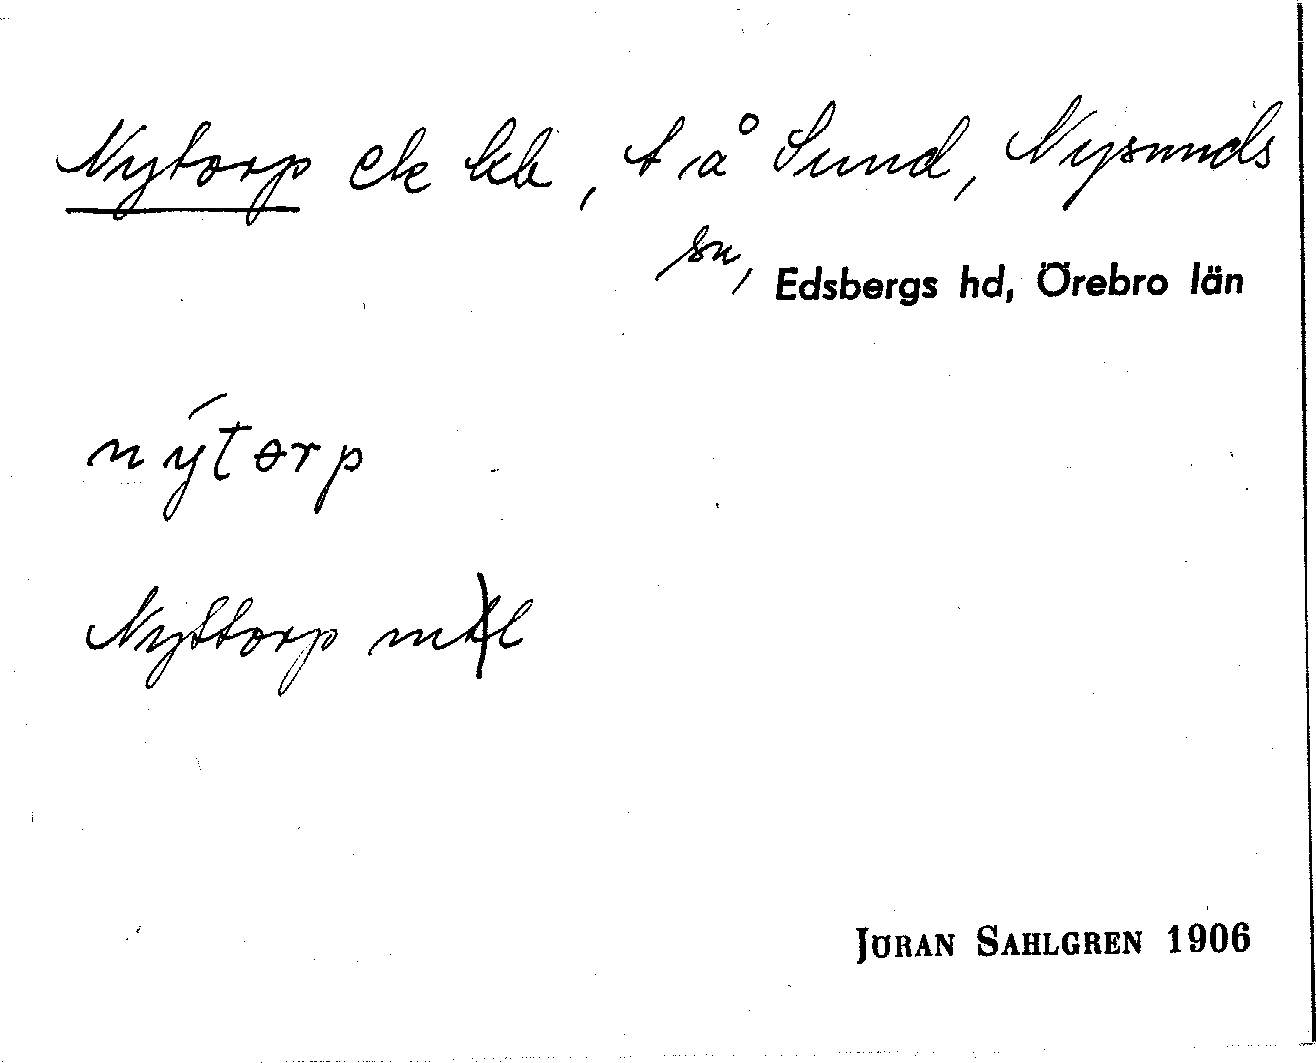 Nytorp ek kb, t å Sund, Nysunds
sn, Edsbergs hd, Örebro län
nýtɵrp
Nyttorp
JÖRAN SAHLGREN 1906